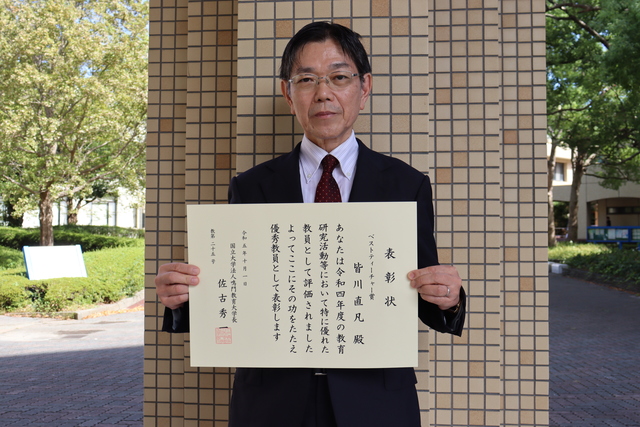 表彰状
ベストティーチャー賞
皆川直凡 殿
あなたは令和四年度の教育
研究活動等において特に優れた
教員として評価されました
よってここにその功をたたえ
優秀教員として表彰します
令和五年十月一日
国立大学法人鳴門教育大学長
佐古秀一
教第二十五号